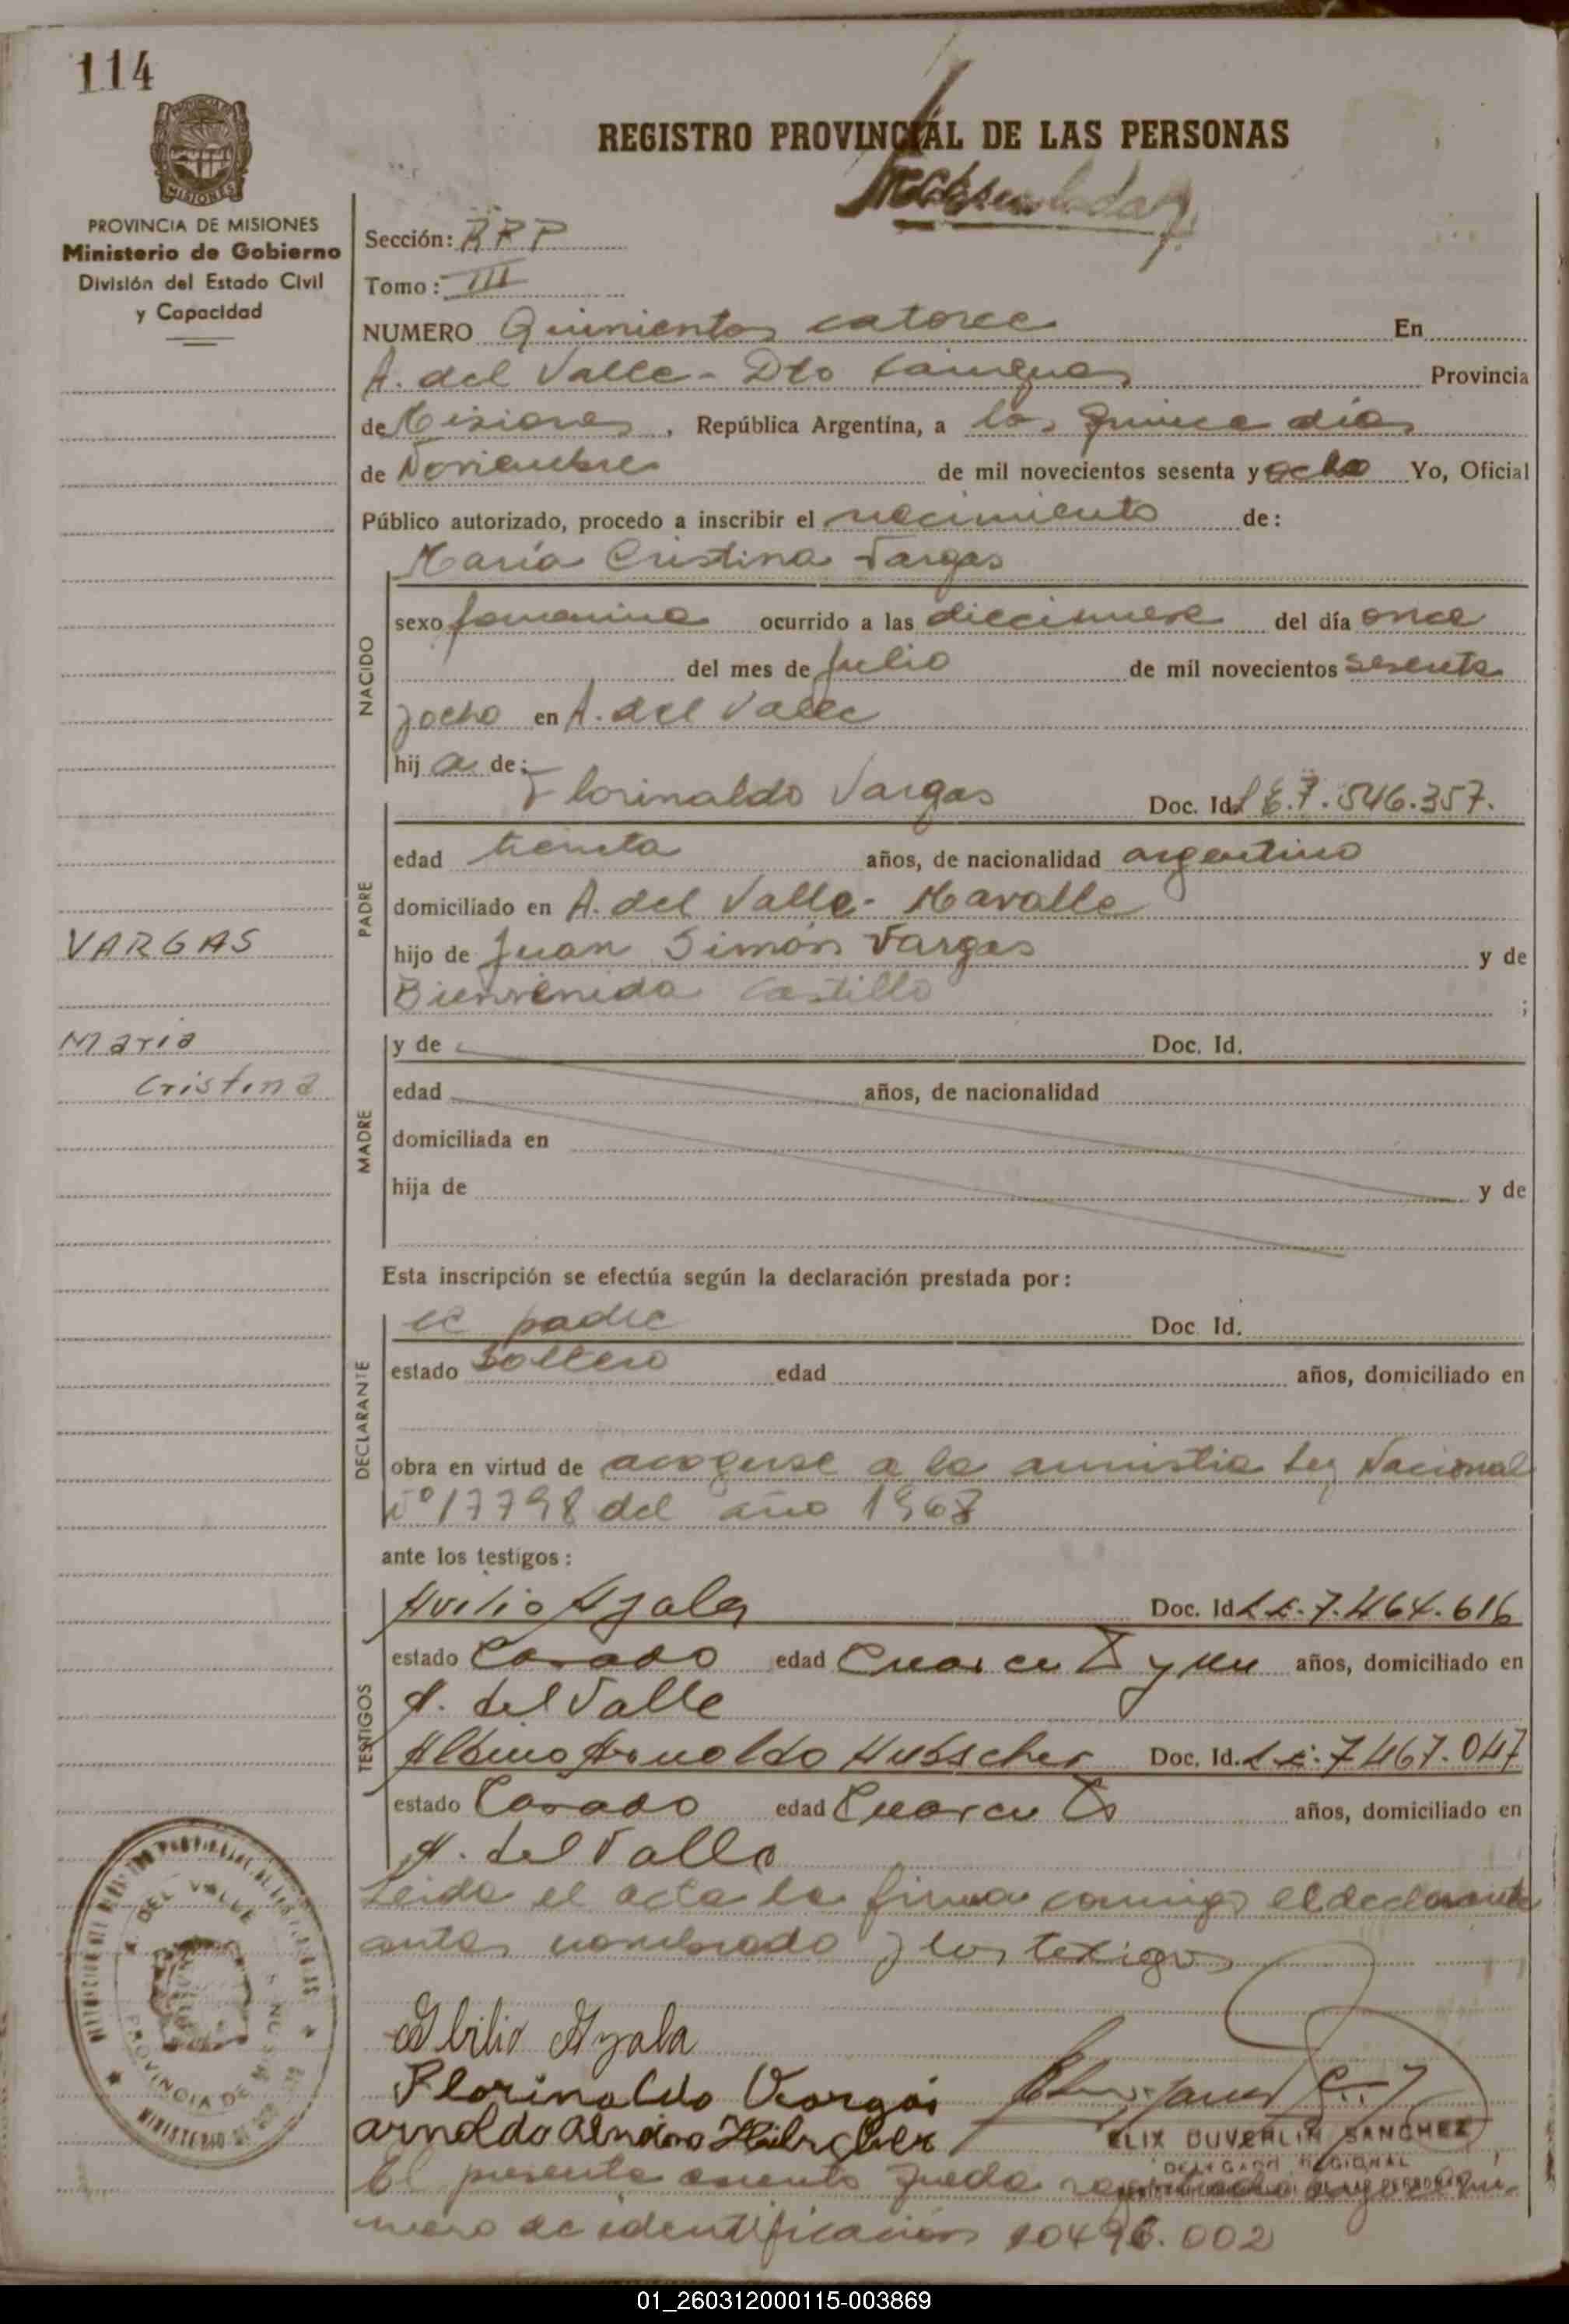 114
REGISTRO PROVINCIAL DE LAS PERSONAS
PROVINCIA DE MISIONES
Ministerio de Gobierno
División del Estado Civil
y Capacidad
Sección: RRP
Tomo: III
NUMERO Quinientos catorce En
A. del Valle - Dto Cainguas Provincia
de Misiones, República Argentina, a los quince dias
de Noviembre de mil novecientos sesenta y ocho Yo, Oficial
Público autorizado, procedo a inscribir el nacimiento de:
NACIDO
María Cristina Vargas
sexo femenino ocurrido a las diecinueve del día once
del mes de Julio de mil novecientos sesenta
y ocho en A. del Valle
hij a de:
PADRE
Florinaldo Vargas Doc. Id. L E. 7.546.357.
edad treinta años, de nacionalidad argentino
domiciliado en A. del Valle - Mavalle
hijo de Juan Simón Vargas y de
Bienvenida Castillo ;
VARGAS
Maria
Cristina
MADRE
y de Doc. Id.
edad años, de nacionalidad
domiciliada en
hija de y de
Esta inscripción se efectúa según la declaración prestada por:
DECLARANTE
el padre Doc Id.
estado soltero edad años, domiciliado en
obra en virtud de acogerse a la amnistia Ley Nacional
Nº 17798 del año 1968
ante los testigos:
TESTIGOS
Avilio Ayala Doc. Id L.E. 7.464.616
estado Casado edad Cuarenta y un años, domiciliado en
A. del Valle
Albino Arnoldo Hubscher Doc. Id. L.E. 7467.047
estado Casado edad Cuarenta años, domiciliado en
A. del Valle
Leida el acta la firma conmigo el declarante
antes nombrado y los testigos
Abilio Ayala
Florinaldo Vargas
Arnoldo Albino Hübscher
ELIX DUVERLIN SANCHEZ
DELEGADO REGIONAL
A. DEL VALLE
PROVINCIA DE
MINISTERIO DE
El presente asiento queda
mero de identificación 10496.002
01_260312000115-003869